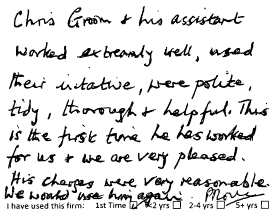 Chris Groom & his assistant
worked extreamly well, used
their intative, were polite,
tidy, thorough & helpful. This
is the first time he has worked
for us & we are very pleased.
His charges were very reasonable.
We would use him again.
I have used this firm: 1st Time ☑ <2 yrs ☐ 2-4 yrs ☐ 5+ yrs ☐